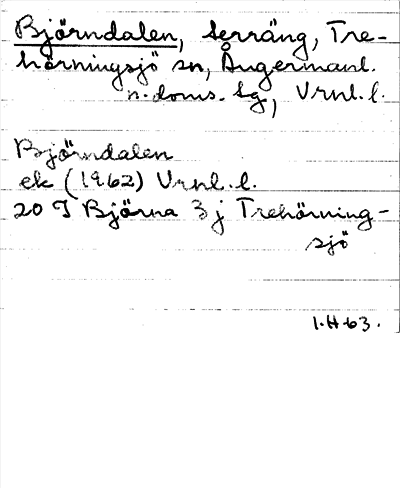 Björndalen, terräng, Tre-
hörningsjö sn, Ångermanl.
n. doms. lg, Vrnl. l.
Björndalen
ek (1962) Vrnl. l.
20 I Björna 3 j Trehörning-
sjö
I.H-63.